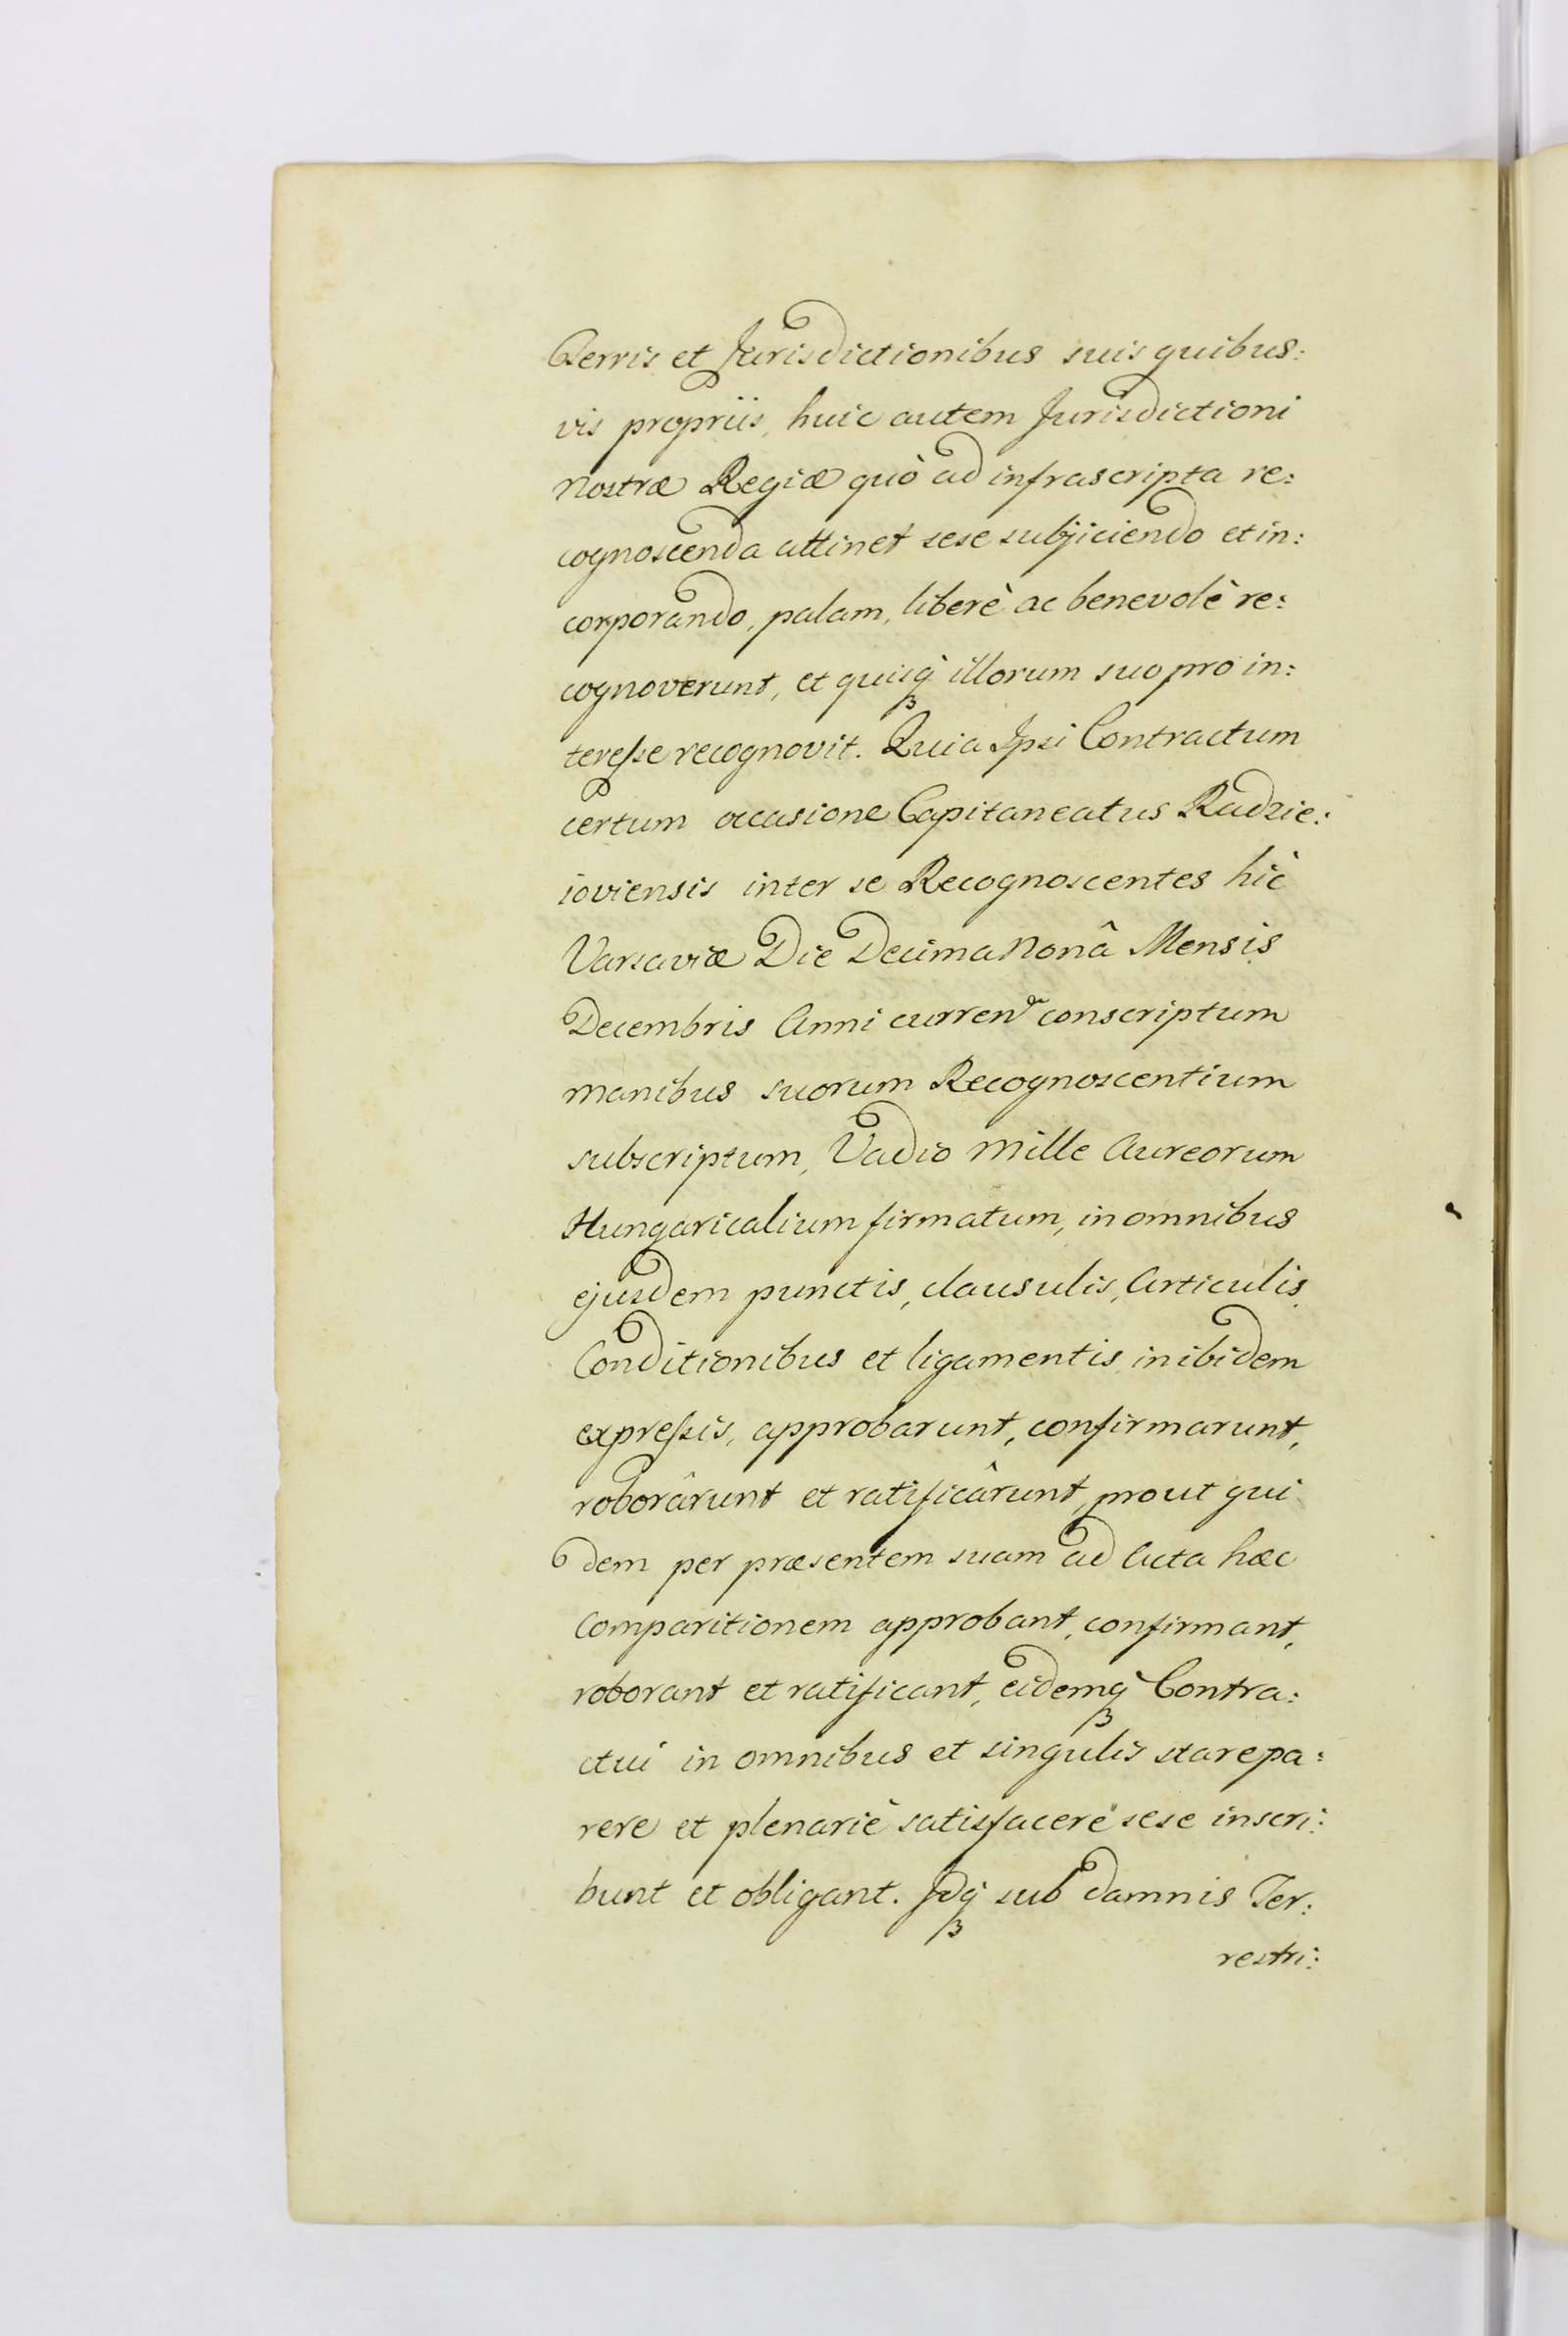 Terris et Jurisdictionibus suis quibus:
vis propriis, huic autem Jurisdictioni
Nostræ Regiæ quò ad infrascripta re:
cognoscenda attinet sese subjiciendo et in:
corporando, palam, liberè ac benevolè re:
cognoverunt, et quisq́ illorum suo pro in:
teresse recognovit. Quia Ipsi Contractum
certum occasione Capitaneatus Radzie:
ioviensis inter se Recognoscentes hìc
Varsaviæ Die Decima Nonâ Mensis
Decembris Anni curren conscriptum
manibus suorum Recognoscentium
subscriptum, Vadio Mille Aureorum
Hungaricalium firmatum, in omnibus
ejusdem punctis, clausulis, Articulis,
Conditionibus et ligamentis inibidem
expressis, approbarunt, confirmarunt,
roborârunt et ratificârunt, prout qui
dem per præsentem suam ad Acta hæc
Comparitionem approbant, confirmant,
roborant et ratificant, eidemq́ Contra:
ctui in omnibus et singulis stare pa:
rere et plenariè satisfacere sese inscri:
bunt et obligant. Idq́ sub damnis Ter:
restri: